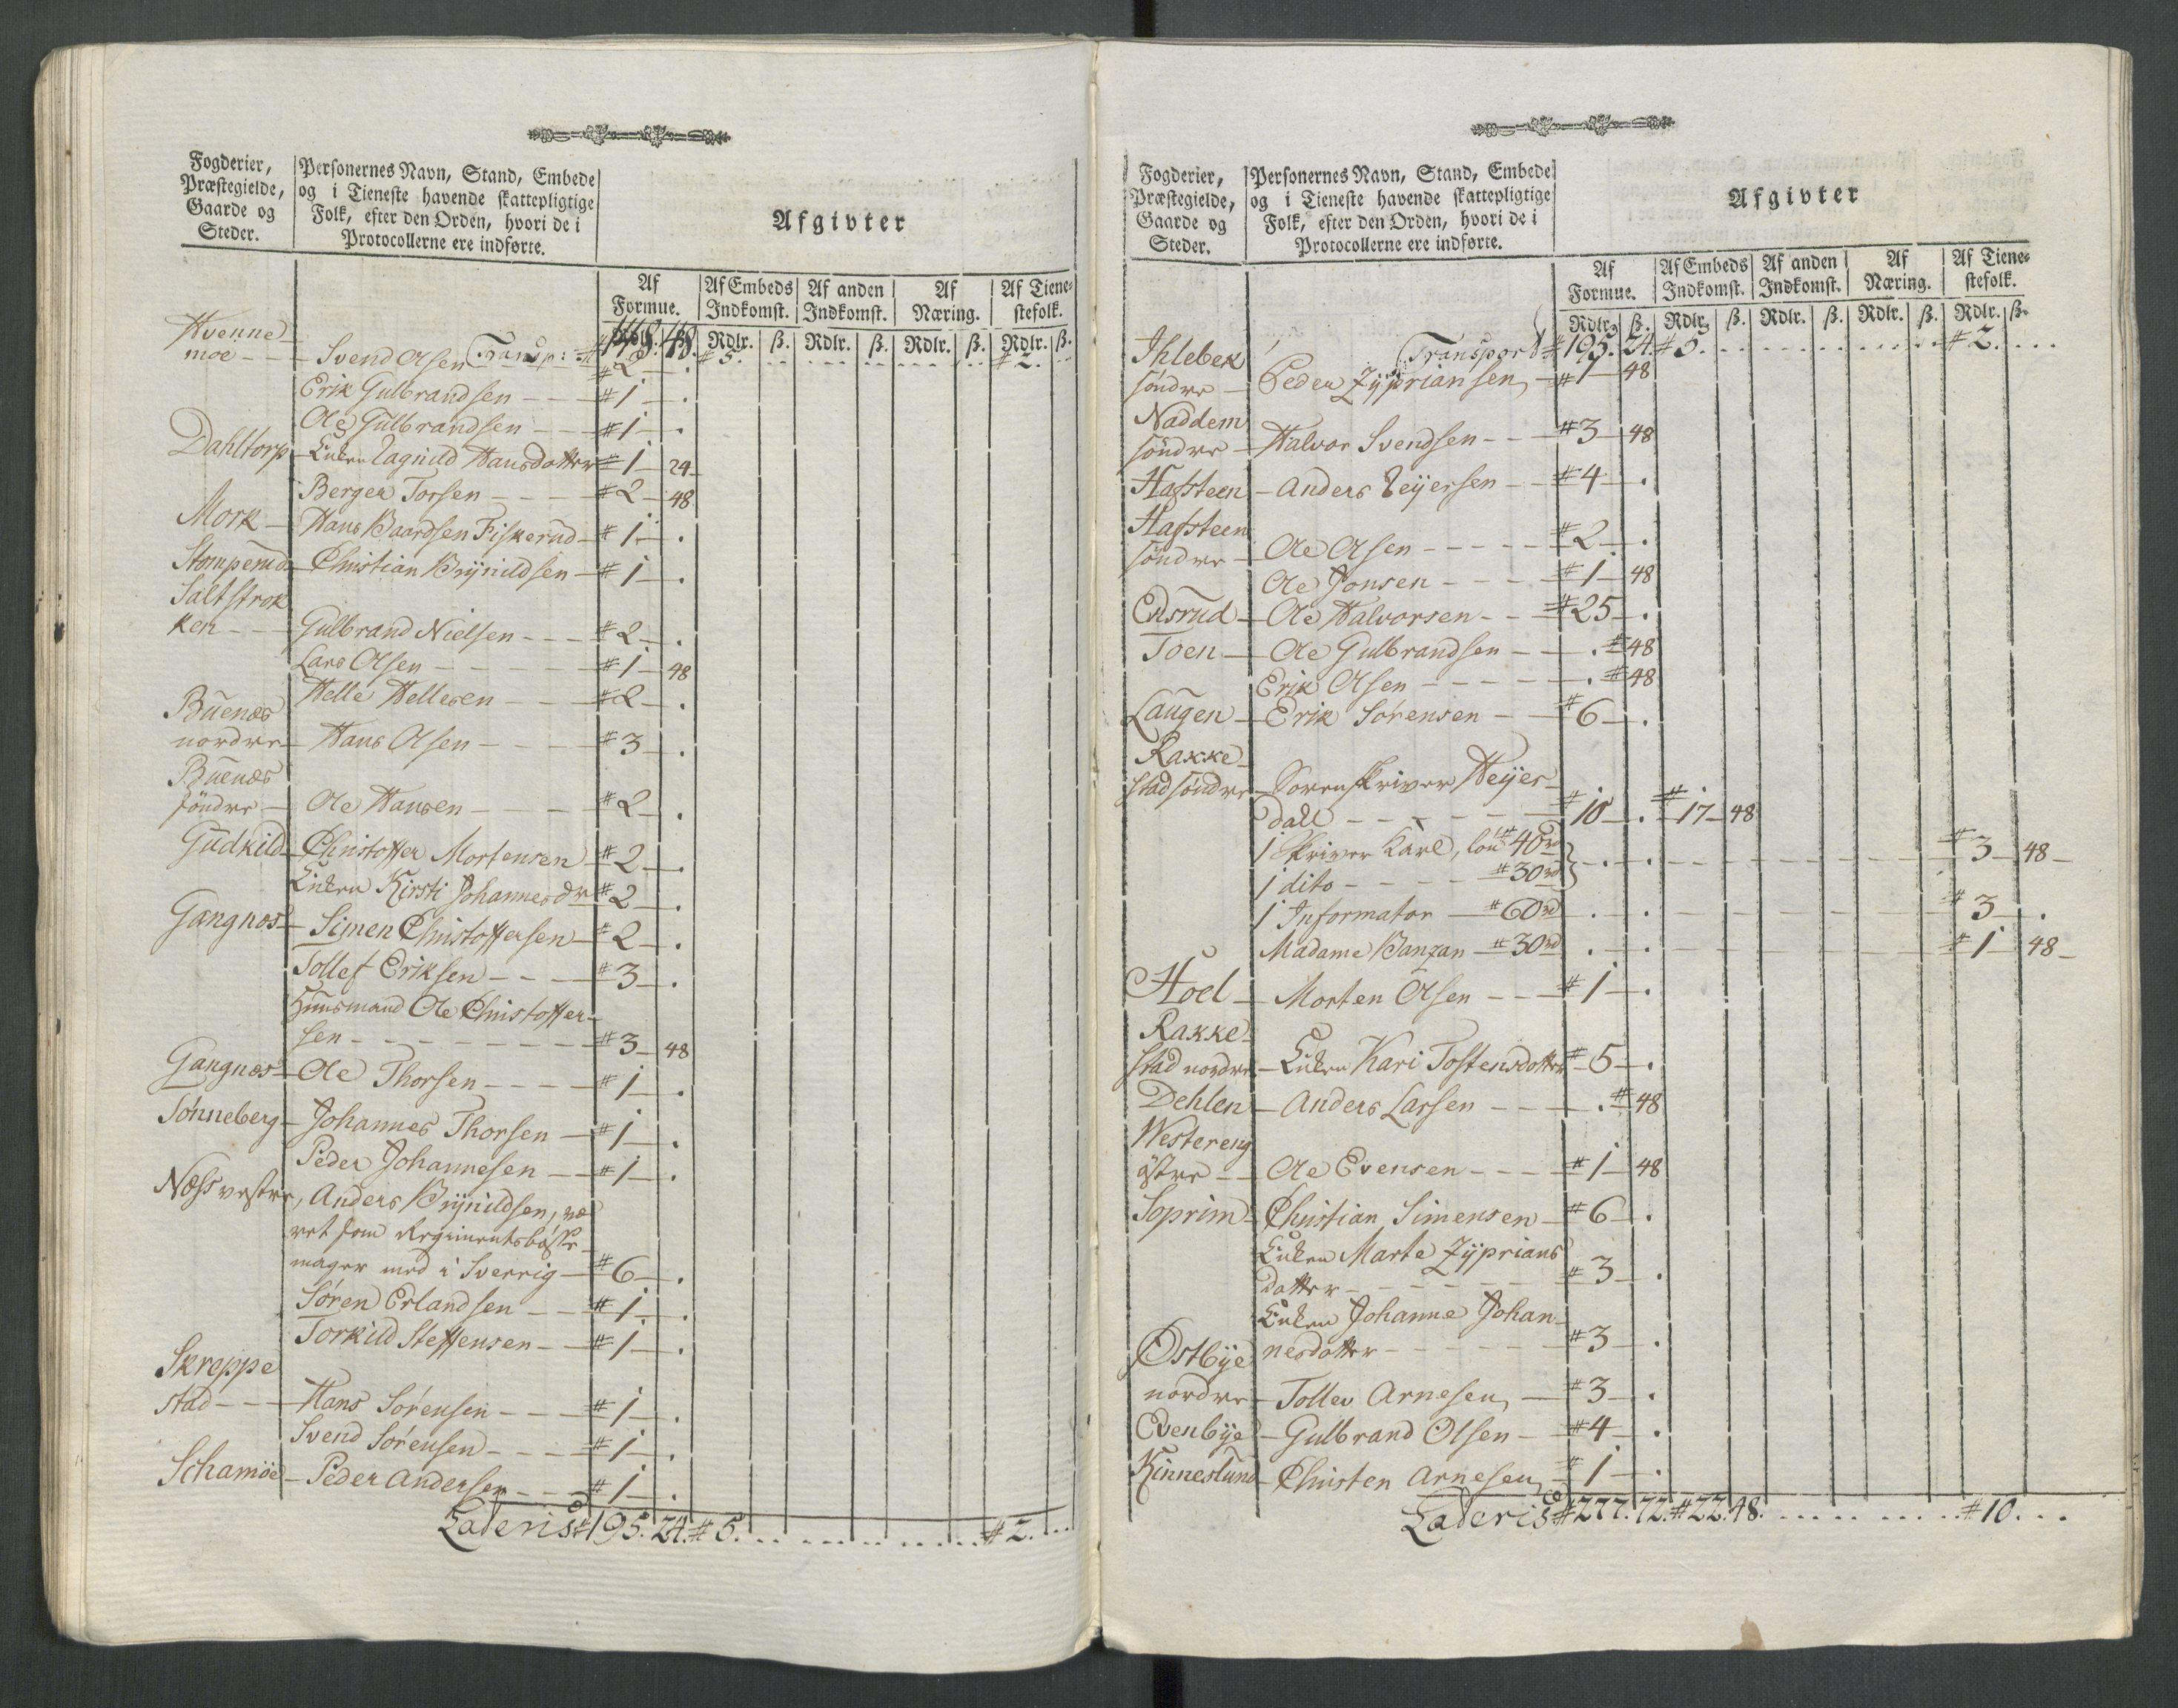 Fogderier,
Præstegielde,
Gaarde og
Steder.
Personernes Navn, Stand, Embede
og i Tieneste havende skattepligtige
Folk, efter den Orden, hvori de i
Protocollerne ere indførte.
Afgivter
Af Formue.
Af Embeds Indkomst.
Af anden Indkomst.
Af Næring.
Af Tienestefolk.
Rdlr. ß. Rdlr. ß. Rdlr. ß. Rdlr. ß.
Transp: # 148. 48. # 5. # 2.
Hvenne
moe - - Svend Olsen # 2 - .
Erik Gulbrandsen - - # 1 - .
Ole Gulbrandsen - - # 1 - .
Dahltorp - Enken Ragnild Hansdatter # 1 - 24
Berger Torsen - - - # 2 - 48
Mork - Hans Baardsen Fiskerud - # 1 - .
Stomperud - Christian Brÿnildsen - # 1 - .
Saltstrok
ken - - Gulbrand Nielsen - - - # 2 - .
Lars Olsen - - - - # 1 - 48
Helle Hellesen - - # 2 - .
Buenæs
nordre - Hans Olsen - - - # 3 - .
Buenæs
søndre - Ole Hansen - - - # 2 - .
Gudkild - Christoffer Mortensen # 2 - .
Enken Kirsti Johannesdr # 2 - .
Gangnæs - Simen Christoffersen - # 2 - .
Tollef Eriksen - - - # 3 - .
Huusmand Ole Christoffer-
sen - - - - - - - # 3 - 48
Gangnæs - Ole Thorsen - - - - # 1 - .
Tønneberg - Johannes Thorsen - # 1 - .
Peder Johannesen - - # 1 - .
Næss vestre, Anders Brÿnildsen, væ
ret som Regimentsbösse-
mager med i Sverrig - # 6 - .
Søren Erlandsen - - # 1 - .
Torkild Steffensen - - # 1 - .
Skreppe
stad - - - Hans Sørensen - - - # 1 - .
Svend Sørensen - - - # 1 - .
Schamöe - Peder Andersen - - - # 1 - .
Lateris # 195. 24. # 5. # 2.
Fogderier,
Præstegielde,
Gaarde og
Steder.
Personernes Navn, Stand, Embede
og i Tieneste havende skattepligtige
Folk, efter den Orden, hvori de i
Protocollerne ere indførte.
Afgivter
Af Formue.
Af Embeds Indkomst.
Af anden Indkomst.
Af Næring.
Af Tienestefolk.
Rdlr. ß. Rdlr. ß. Rdlr. ß. Rdlr. ß. Rdlr. ß.
Transport # 195. 24. # 5. # 2.
Ihlebek
söndre - Peder Zÿpriansen - # 1 - 48
Naddem
söndre - Halvor Svendsen - - # 3 - 48
Hafsteen - Anders Reÿersen - - # 4 - .
Hafsteen
söndre - Ole Olsen - - - - - # 2 - .
Ole Jonsen - - - - # 1 - 48
Eilsrud - Ole Halvorsen - - # 25 - .
Toen - Ole Gulbrandsen - - . # 48
Erik Olsen - - - - - . # 48
Laugen - Erik Sørensen - - # 6 - .
Rakke-
stad söndre - Sorenskriver Heÿer-
dall - - - - - - # 10 - . # 17 - 48
1 Skriver Karl, løn # 40 rd
1 dito - - - - # 30 rd } - . - . # 3 - 48
1 Informator - # 60 rd . - . # 3 - .
Madame Banzan - # 30 rd . - . # 1 - 48
Hoel - Morten Olsen - - - # 1 - .
Rakke-
stad nordre - Enken Kari Tostensdotter # 5 - .
Dehlen - Anders Larsen - - - . # 48
Westereng
östre - - Ole Evensen - - - # 1 - 48
Soprim - Christian Simensen - # 6 - .
Enken Marte Zÿprians
datter - - - - - # 3 - .
Enken Johanne Johan-
nesdatter - - - - - - # 3 - .
Østbÿe
nordre - Tollev Arnesen - # 3 - .
Evenbÿe - Gulbrand Olsen - # 4 - .
Kinneslund - Christen Arnesen - # 1 - .
Lateris # 277. 72. # 22. 48. # 10.